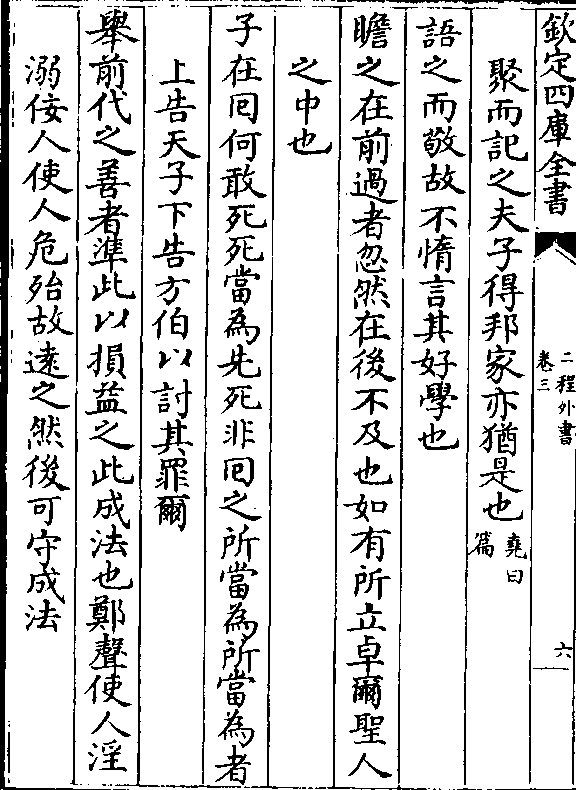 欽定四庫全書
二程外書
卷三
六
聚而記之夫子得邦家亦猶是也堯曰篇
語之而敬故不惰言其好學也
瞻之在前過者忽然在後不及也如有所立卓爾聖人
之中也
子在囘何敢死死當為先死非囘之所當為所當為者
上告天子下告方伯以討其罪爾
舉前代之善者準此以損益之此成法也鄭聲使人淫
溺佞人使人危殆故遠之然後可守成法